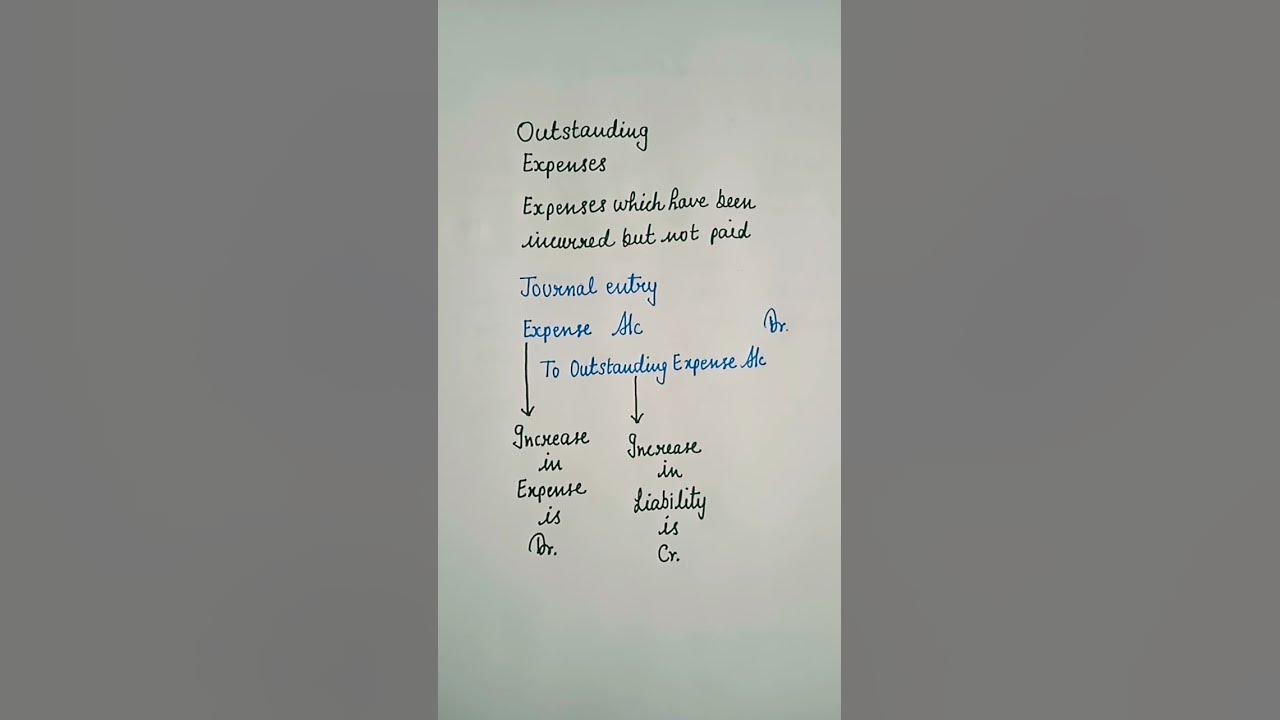 Outstanding
Expenses
Expenses which have been
incurred but not paid
Journal entry
Expense A/c Dr.
To Outstanding Expense A/c
Increase
in
Expense
is
Dr.
Increase
in
Liability
is
Cr.